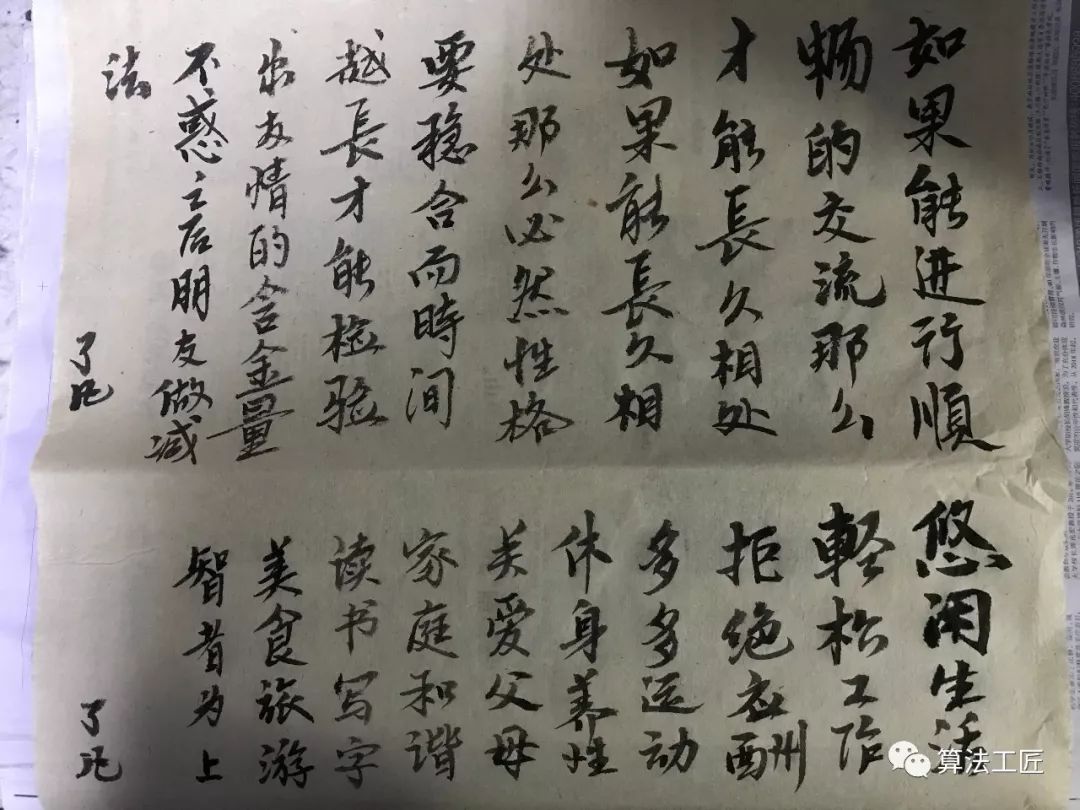 如果能进行順
畅的交流那么
才能長久相处
如果能長久相
处那么必然性格
要稳合而時间
越長才能检验
出友情的含金量
不惑之后朋友做减
法
了凡
悠闲生活
軽松工作
拒绝应酬
多多运动
休身养性
关爱父母
家庭和谐
读书写字
美食旅游
智者为上
了凡
算法工匠